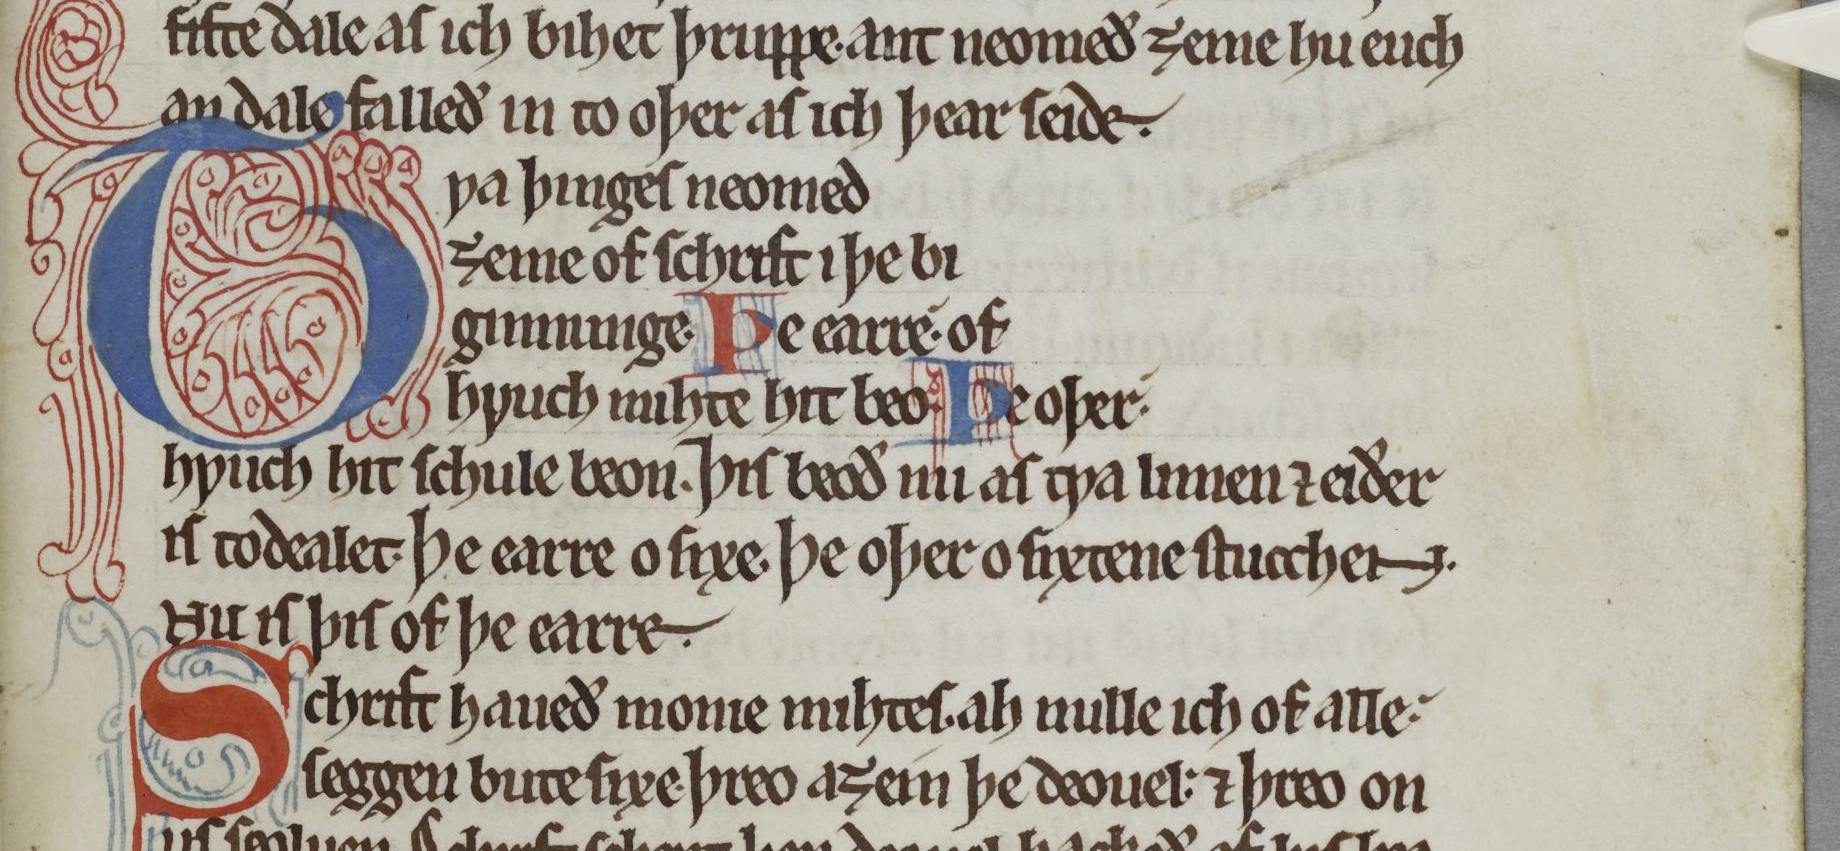 fifte dale as ich bihet þruppe. ant neomeð ȝeme hu euch
an dale falleð in to oþer as ich þear seide.
Tƿa þinges neomed
ȝeme of schrift i þe bi
ginninge. Þe earre. of
hƿuch mihte hit beo. Þe oþer.
hƿuch hit schule beon. Þis beoð nu as tƿa limen ⁊ eiðer
is todealet. þe earre o sixe. þe oþer o sixtene stucchen.
Nu is þis of þe earre.
Schrift haueð monie mihtes. ah nulle ich of alle.
seggen bute sixe. þreo aȝein þe deouel. ⁊ þreo on
us seoluen. Schrift schent þen deouel. hackeð of his